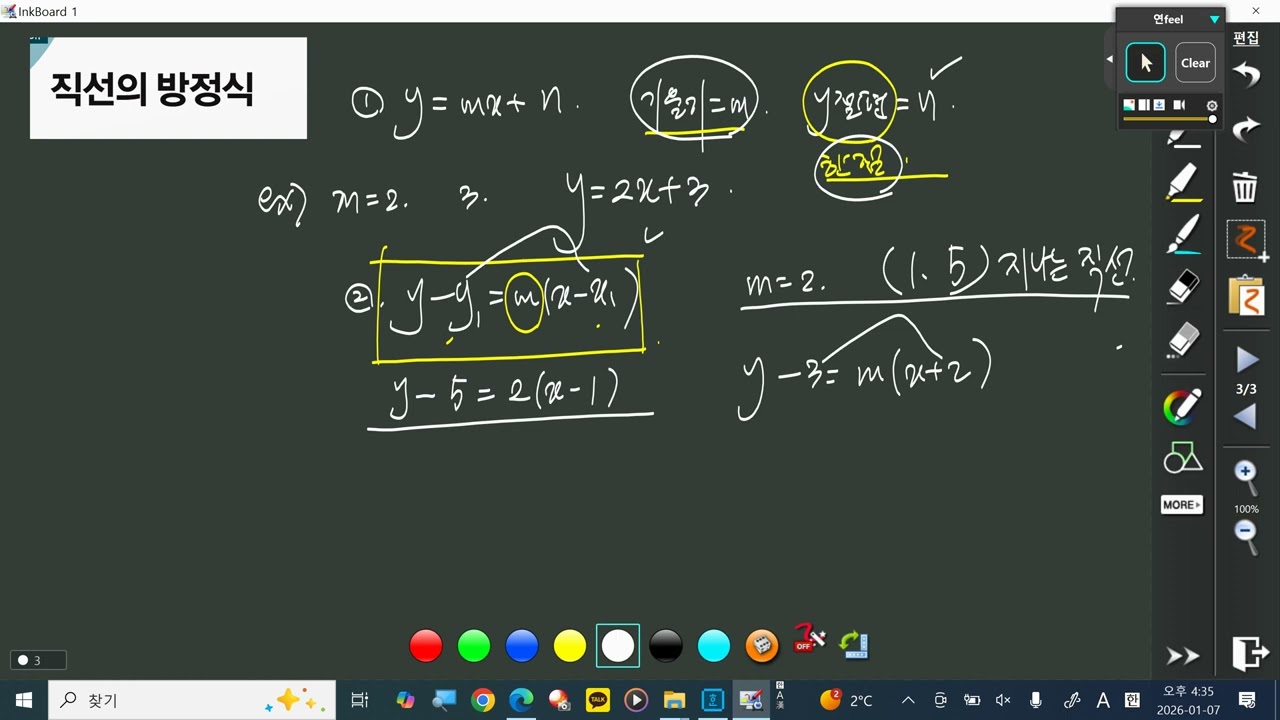 InkBoard 1
직선의 방정식
① y = mx + n. 기울기 = m. y절편 = n.
한 점
ex) m = 2. 3. y = 2x + 3.
② y - y₁ = m(x - x₁)
m = 2. (1. 5) 지나는 직선.
y - 5 = 2(x - 1)
y - 3 = m(x + 2)
연feel
Clear
편집
3/3
MORE
100%
OFF
3
찾기
TALK
2
2°C
A
한
오후 4:35
2026-01-07